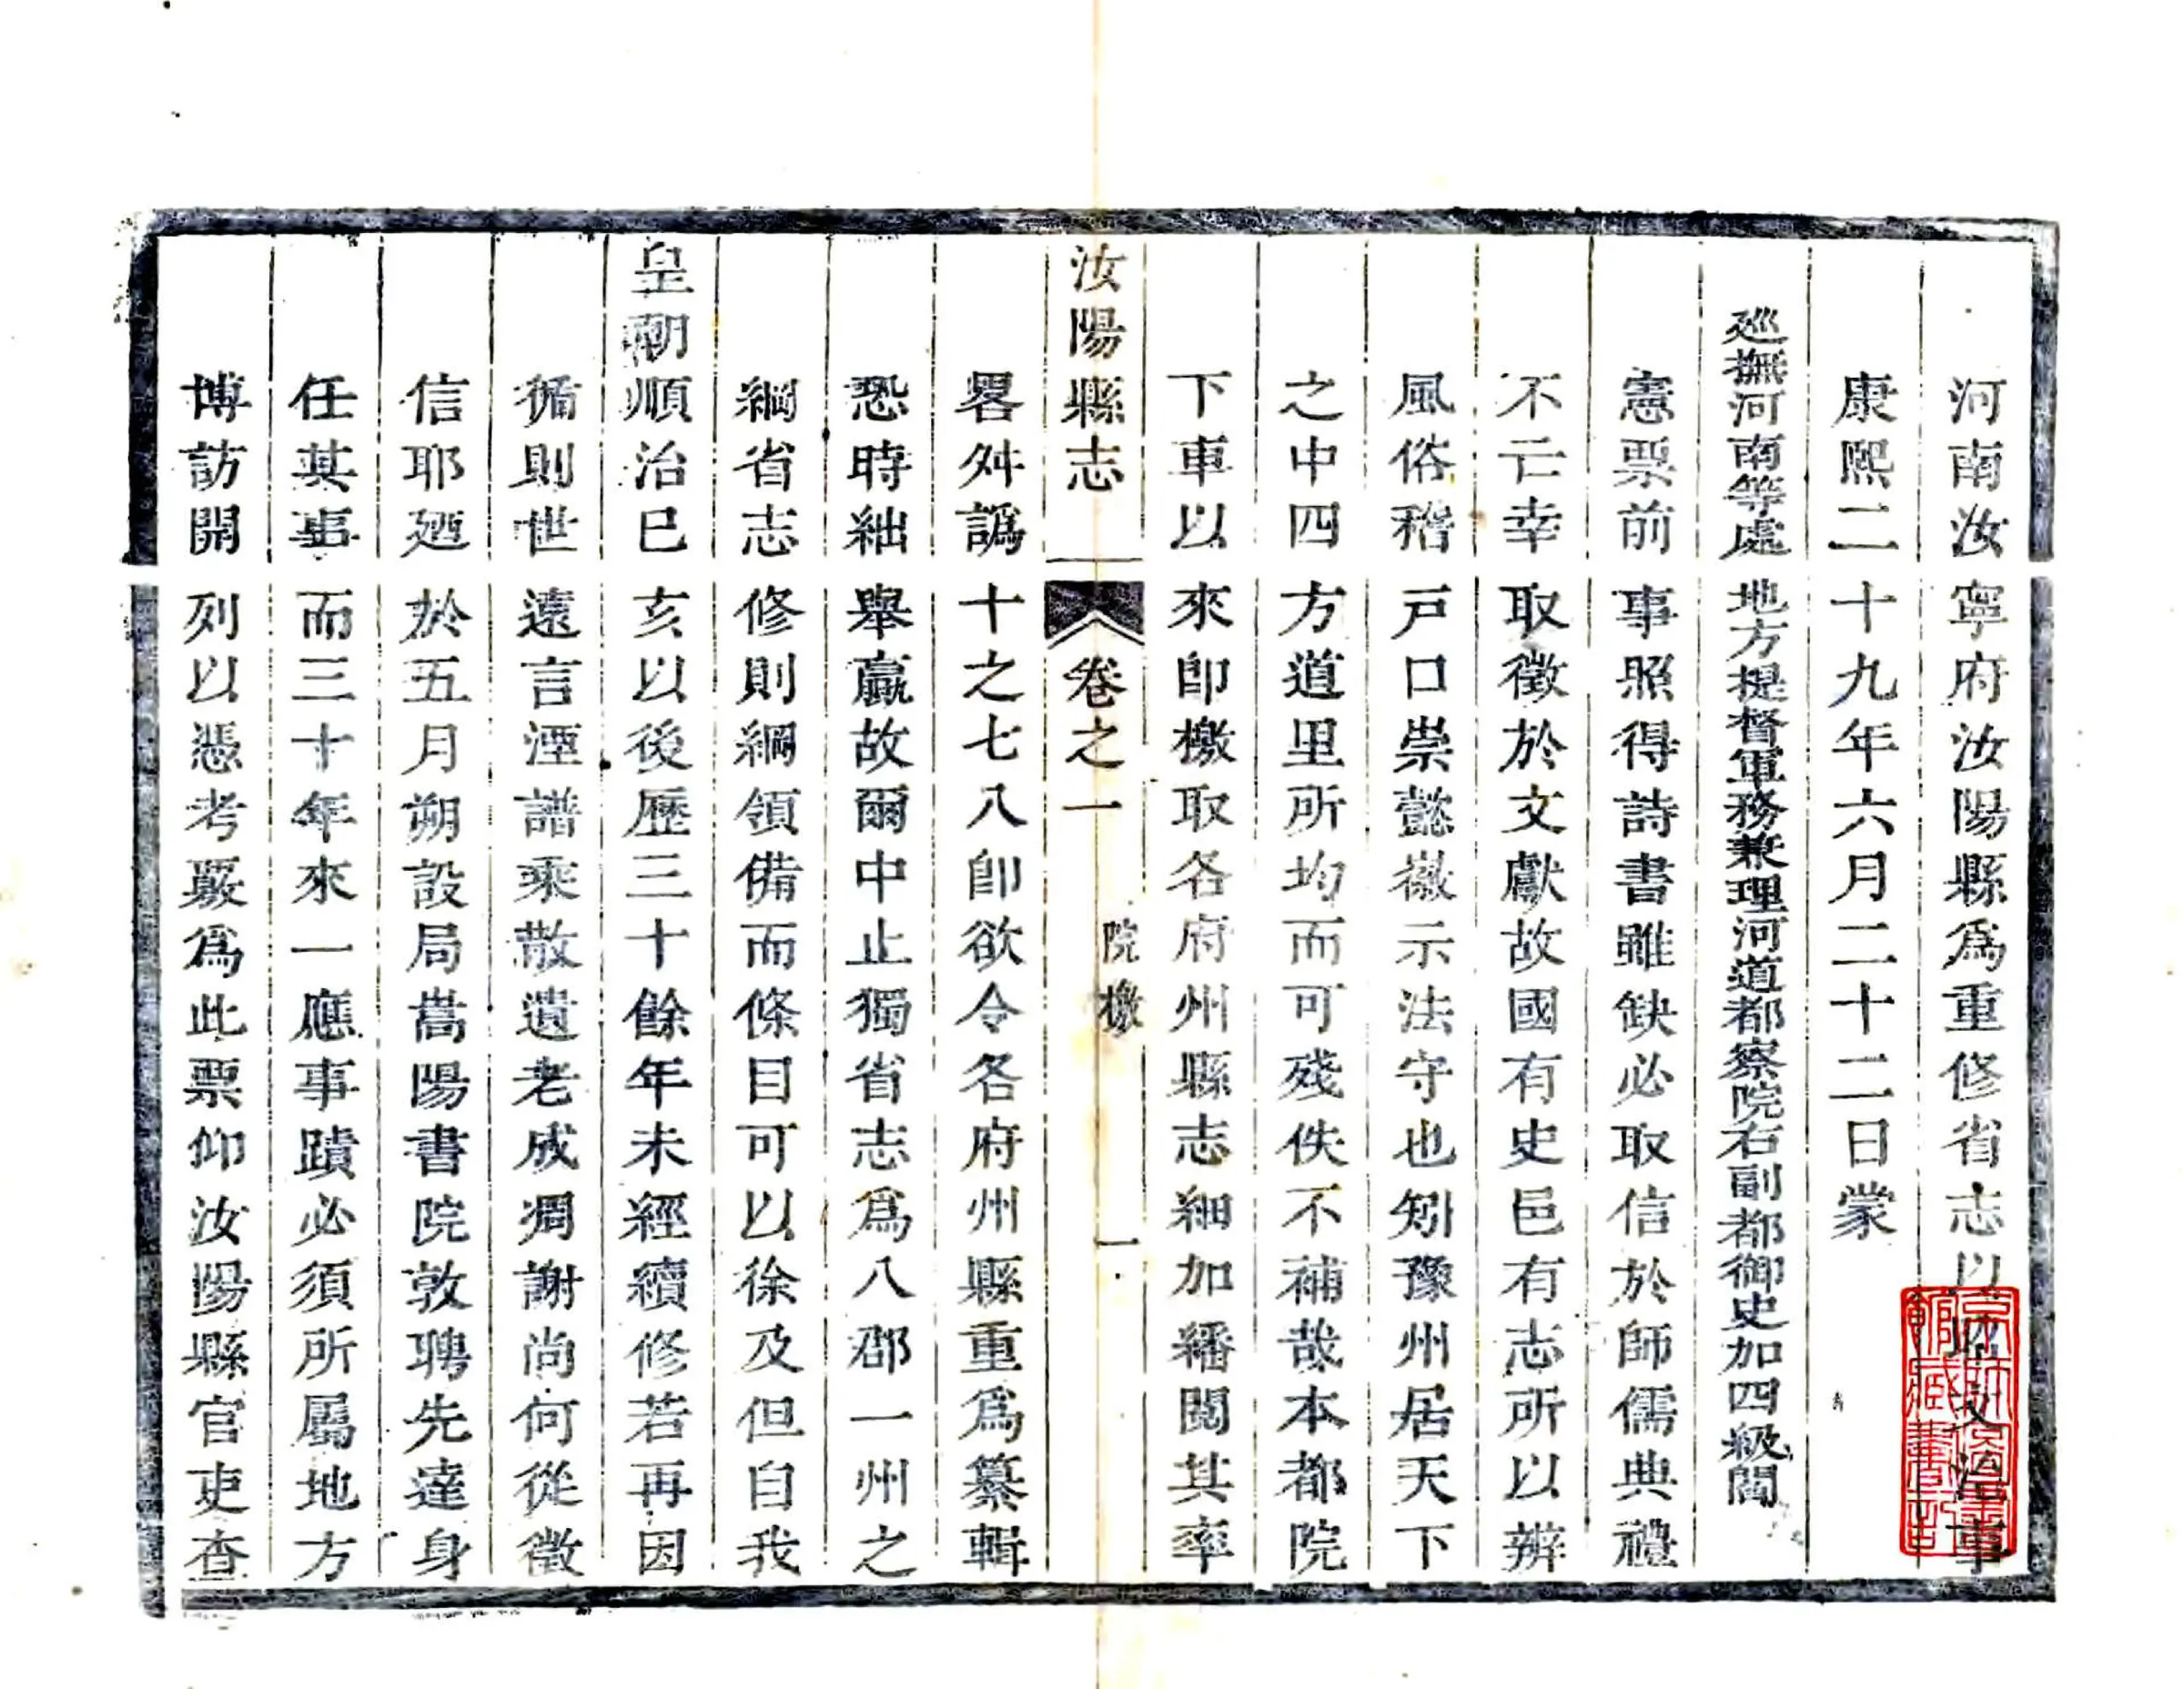 河南汝寧府汝陽縣爲重修省志以昭文治事
康熙二十九年六月二十二日蒙
廵撫河南等處地方提督軍務兼理河道都察院右副都御史加四級閻
憲票前事照得詩書雖缺必取信於師儒典禮
不亡幸取徵於文獻故國有史邑有志所以辨
風俗稽戸口崇懿徽示法守也矧豫州居天下
之中四方道里所均而可殘佚不補哉本都院
下車以來卽檄取各府州縣志細加繙閱其率
汝陽縣志
卷之一
院檄
一
畧舛譌十之七八卽欲令各府州縣重爲纂輯
恐時絀舉贏故爾中止獨省志爲八郡一州之
綱省志修則綱領備而條目可以徐及但自我
皇朝順治巳亥以後歷三十餘年未經續修若再因
循則世遠言湮譜乘散遺老成凋謝尚何從徵
信耶廼於五月朔設局嵩陽書院敦聘先達身
任其事而三十年來一應事蹟必須所屬地方
博訪開列以憑考覈爲此票仰汝陽縣官吏查